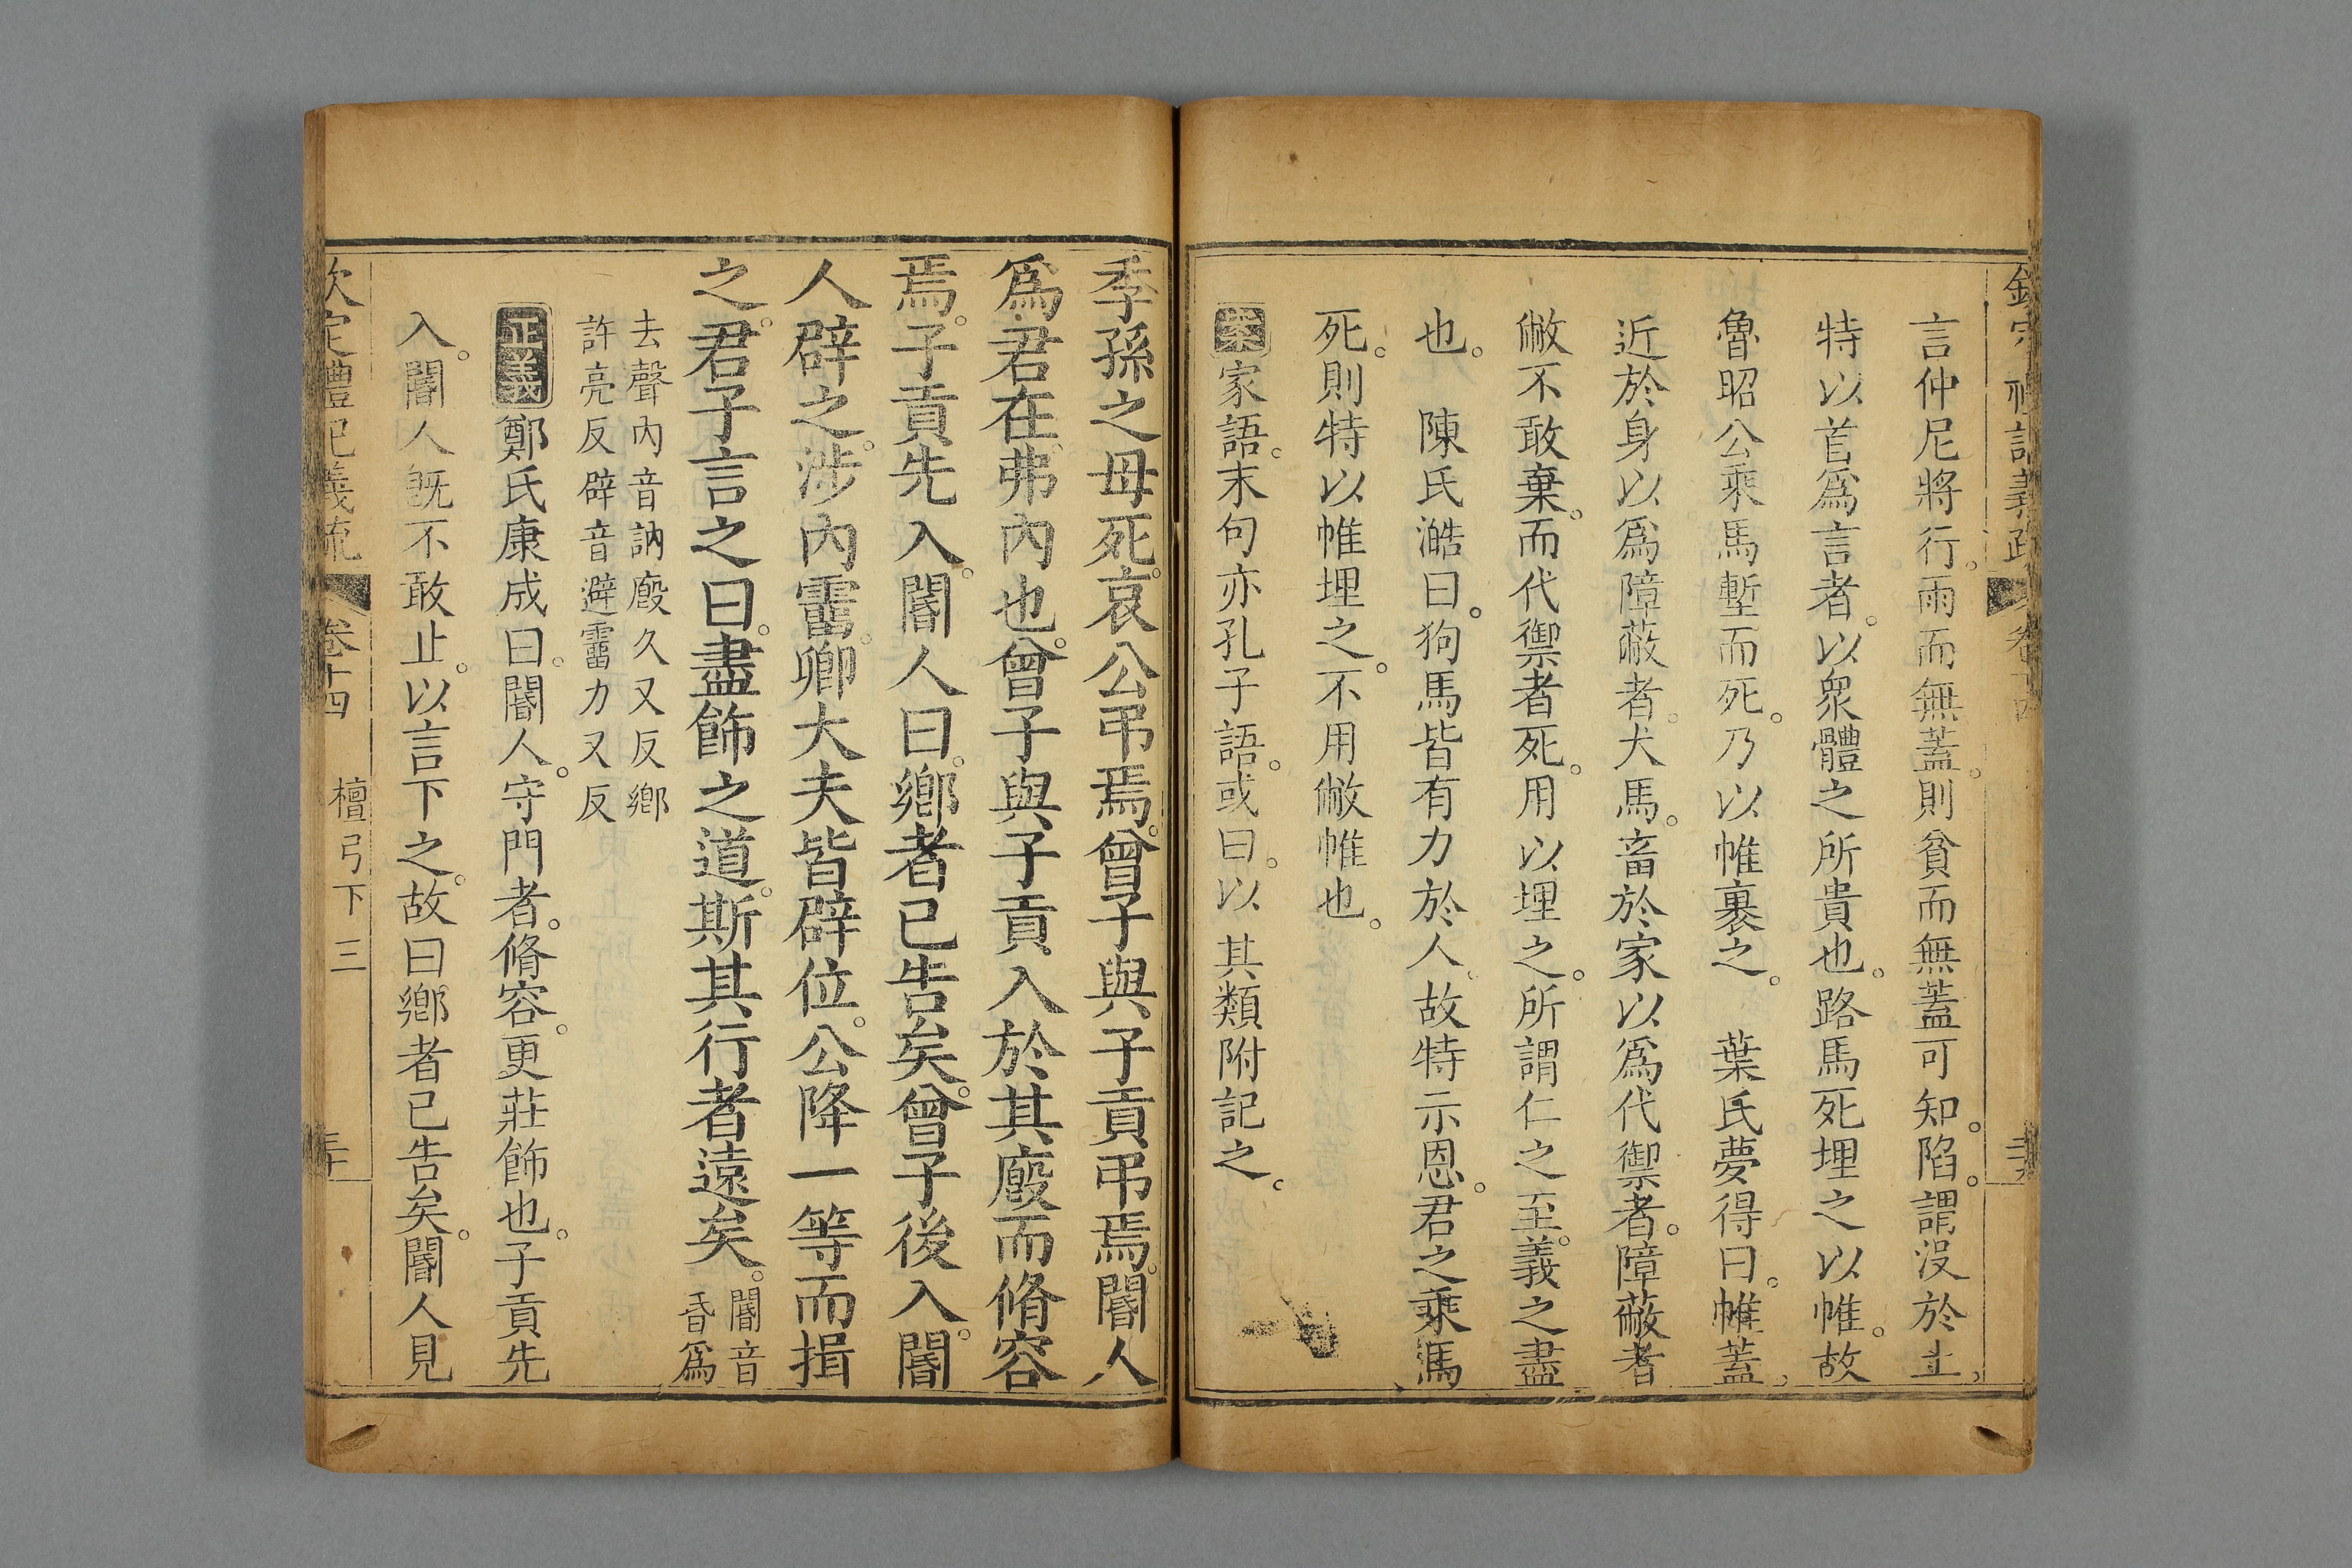 言仲尼將行。雨而無蓋。則貧而無蓋可知。陷。謂沒於土。
特以首爲言者。以衆體之所貴也。路馬死埋之以帷。故
魯昭公乘馬塹而死。乃以帷裹之。 葉氏夢得曰。帷蓋。
近於身以爲障蔽者。犬馬。畜於家以爲代禦者。障蔽者
敝不敢棄。而代禦者死。用以埋之。所謂仁之至。義之盡
也。 陳氏澔曰。狗馬皆有力於人。故特示恩。君之乘馬
死。則特以帷埋之。不用敝帷也。
案家語。末句亦孔子語。或曰。以其類附記之。
季孫之母死。哀公弔焉。曾子與子貢弔焉。閽人
爲君在。弗內也。曾子與子貢入於其廄而脩容
焉。子貢先入。閽人曰。鄉者已告矣。曾子後入。閽
人辟之。涉內霤。卿大夫皆辟位。公降一等而揖
之。君子言之曰。盡飾之道。斯其行者遠矣。閽音昏爲
去聲內音訥廄久又反鄉
許亮反辟音避霤力又反
正義鄭氏康成曰。閽人。守門者。脩容。更莊飾也。子貢先
入。閽人既不敢止。以言下之。故曰鄉者已告矣。閽人見
欽定禮記義疏 卷十四 檀弓下三